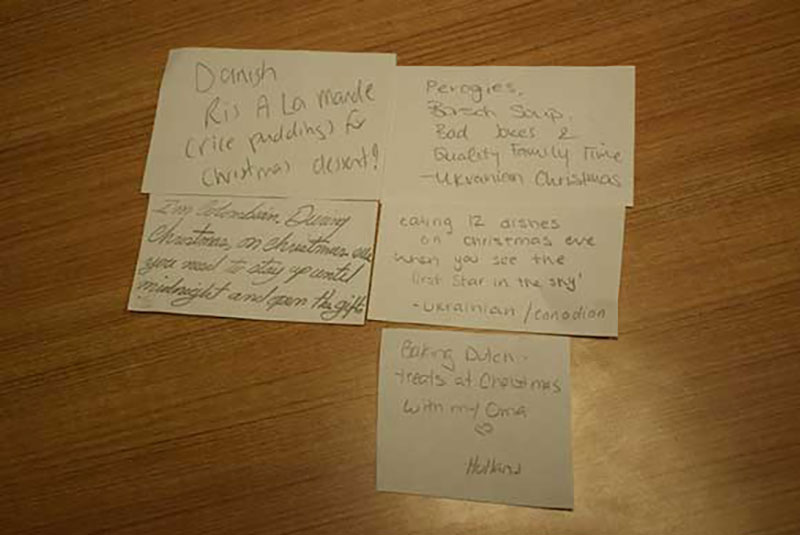 Danish
Ris A La Mande
(rice pudding) for
Christmas dessert!
Perogies,
Borsch Soup,
Bad Jokes &
Quality Family Time
-Ukranian Christmas
I'm Colombian. During
Christmas, on christmas eve
you need to stay up until
midnight and open the gifts
eating 12 dishes
on christmas eve
when you see the
first star in the sky'
-ukrainian/canadian
Baking Dutch
treats at Christmas
with my Oma
♡
Holland